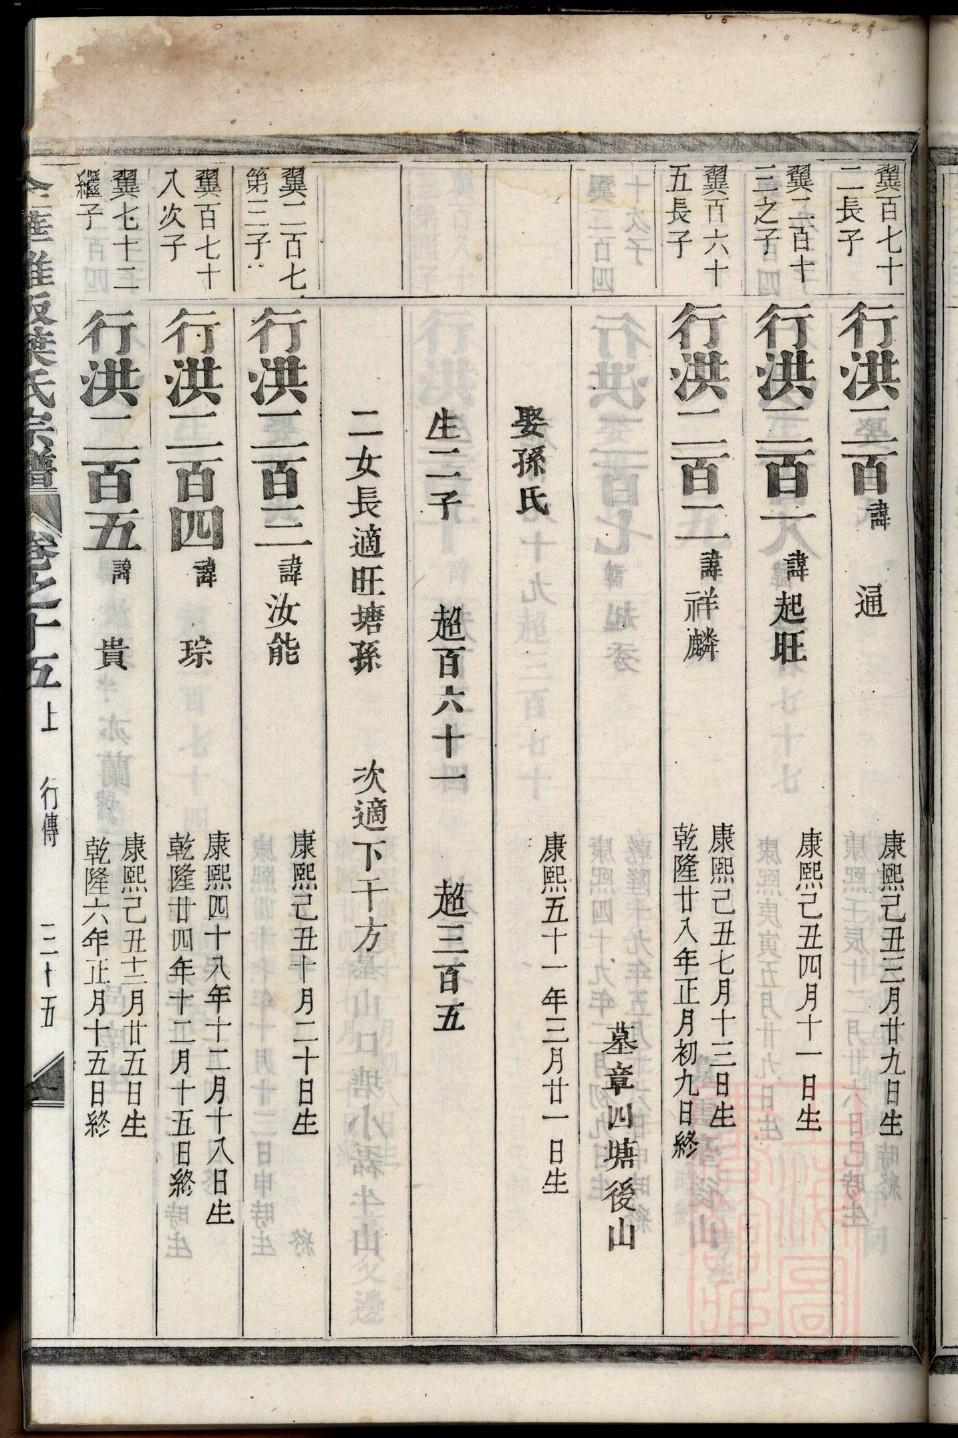 翼百七十
二長子
行洪二百 諱 通
康熙己丑三月廿九日生
翼二百十
三之子
行洪二百一 諱 起旺
康熙己丑四月十一日生
翼百六十
五長子
行洪二百二 諱 祥麟
康熙己丑七月十三日生
乾隆廿八年正月初九日終
墓章四塘後山
娶孫氏
康熙五十一年三月廿一日生
生二子 超百六十一 超三百五
二女長適旺塘孫 次適下于方
翼二百七
第三子
行洪二百三 諱 汝能
康熙己丑十月二十日生
翼百七十
八次子
行洪二百四 諱 琮
康熙四十八年十二月十八日生
乾隆廿四年十二月十五日終
翼七十二
繼子
行洪二百五 諱 貴
康熙己丑十二月廿五日生
乾隆六年正月十五日終
葉氏宗譜 卷之十五 上 行傳 三十五